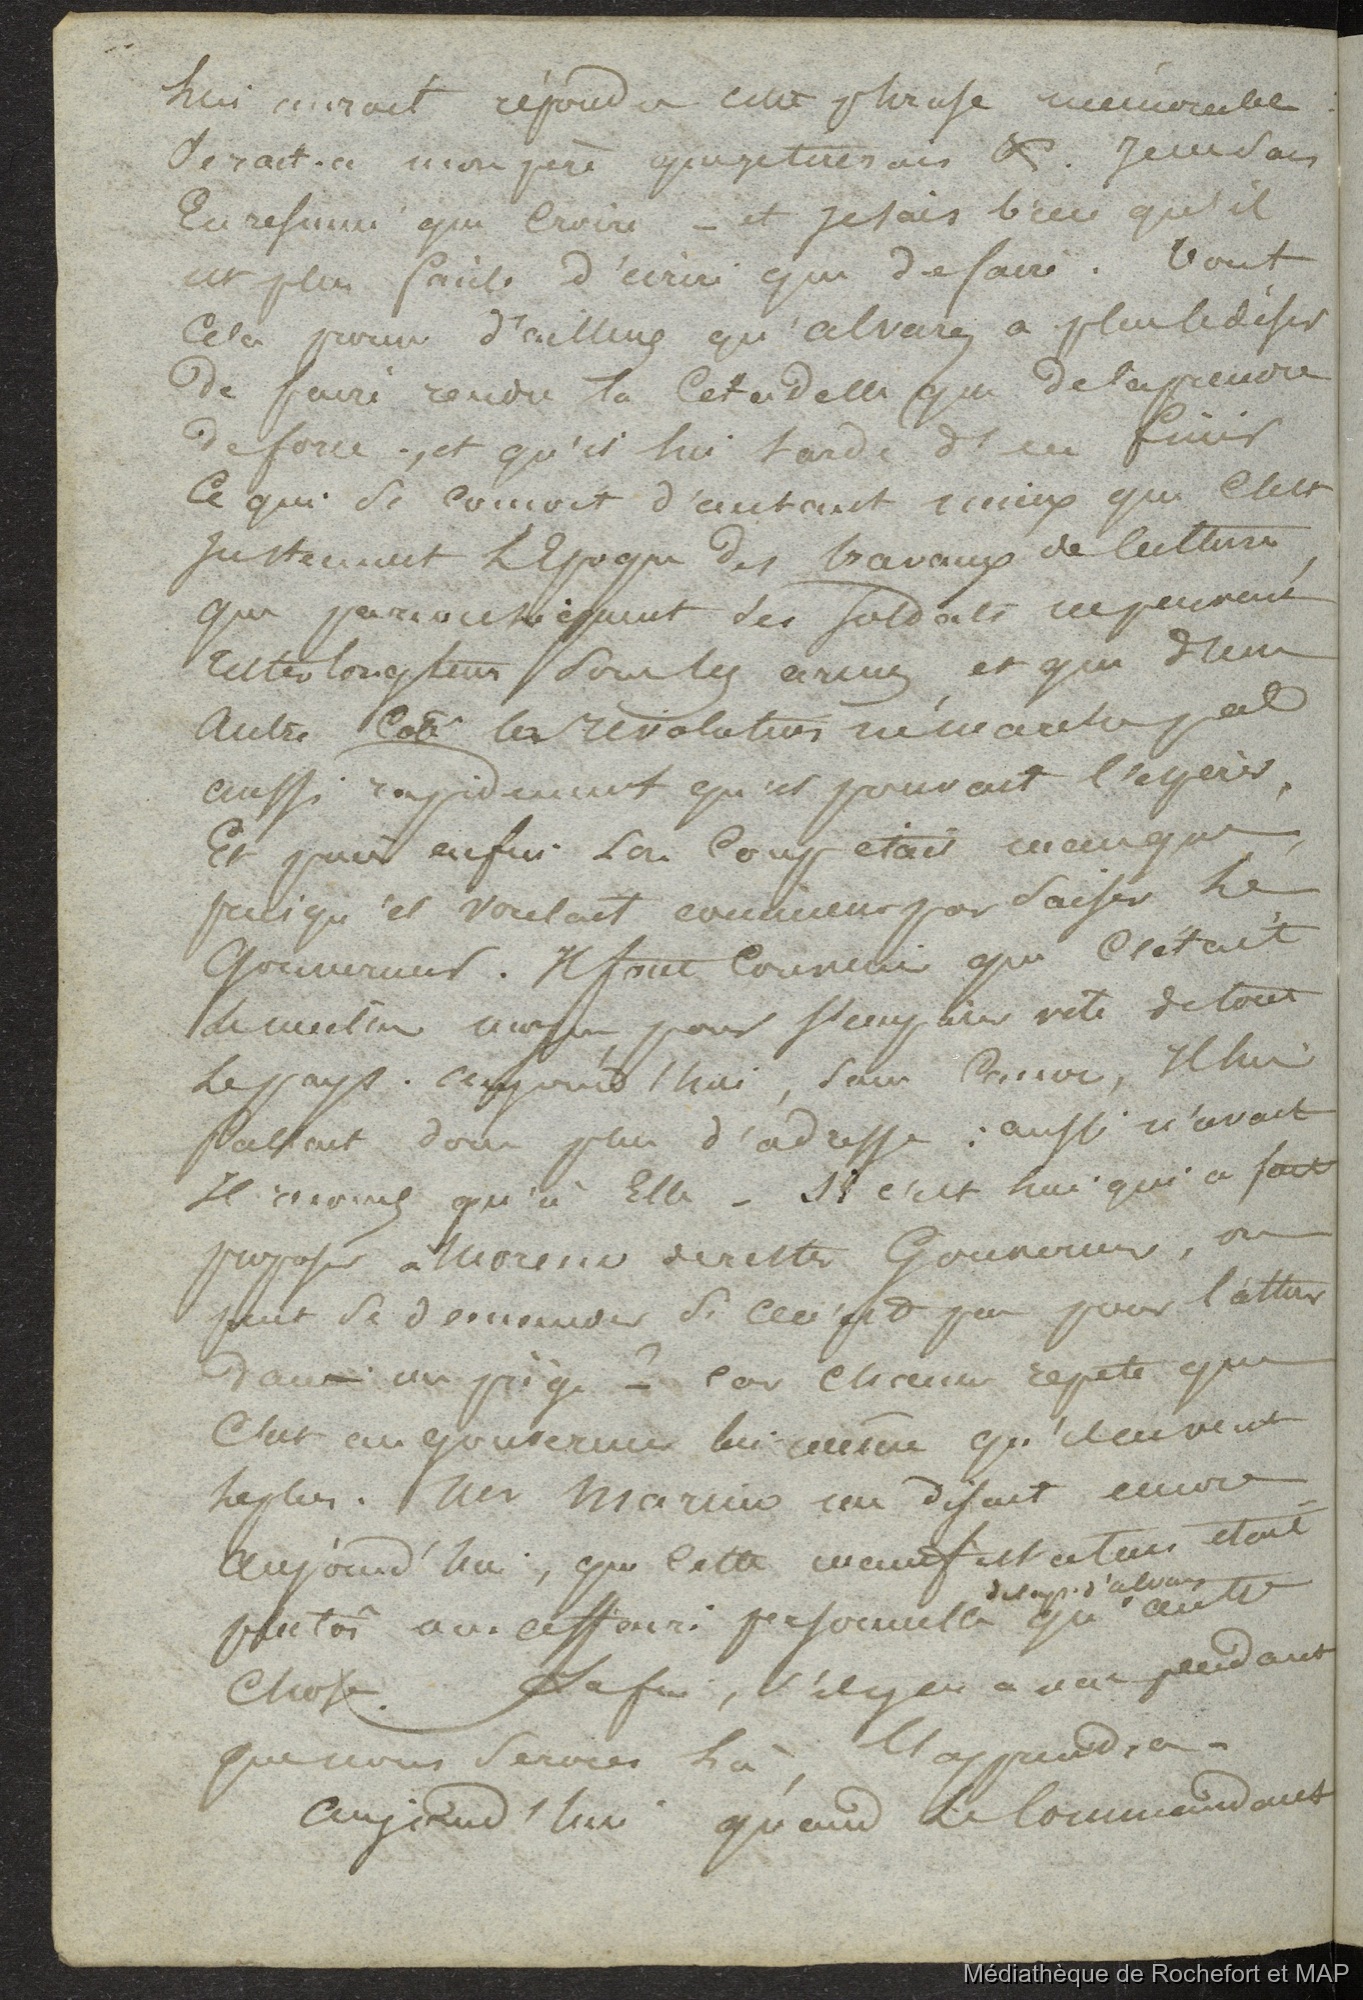 lui aurait répondu cette phrase mémorable :
Serait-ce mon père que je tuerais &. Je ne sais
En resumé que croire - et je sais bien qu'il
est plus facile d'ecrire que de faire. Tout
Cela prouve d'ailleurs qu'alvarez a plus le désir
De faire rendre la Citadelle que de la prendre
De force -, et qu'il lui tarde d'en finir
Ce qui se conçoit d'autant mieux que C'est
Justement L'Epoque des travaux de culture,
que par conséquent ses soldats ne peuvent
rester longtems sous les armes, et que d'une
Autre Coté les révolutions ne marchent pas
aussi rapidement qu'il pouvait l'espérer,
Et puis enfin Son Coup était manqué,
puisqu'il voulait commencer par Saisir Le
Gouverneur. Il faut Convenir que C'était
le meilleur moyen pour s'emparer vite de tout
Le pays. aujourd'hui, Sans Canon, Il lui
fallait donc plus d'adresse : aussi n'avait
Il recours qu'à Elle - Si c'est lui qui a fait
proposer à Moreno de rester Gouverneur, on
peut se demander Si ce n'est pas pour l'attirer
Dans un piège - Car chacun repete que
C'est au gouverneur lui même qu'il en veut
le plus. Mr Marin me disait encore
aujourd'hui, que cette manifestation était
de la part d'alvarez
plutôt une affaire personnelle qu'autre
Chose. La fin, s'il y en a une pendant
que nous serons Là, l'apprendra -
Aujourd'hui quand Le Commandant
Médiathèque de Rochefort et MAP